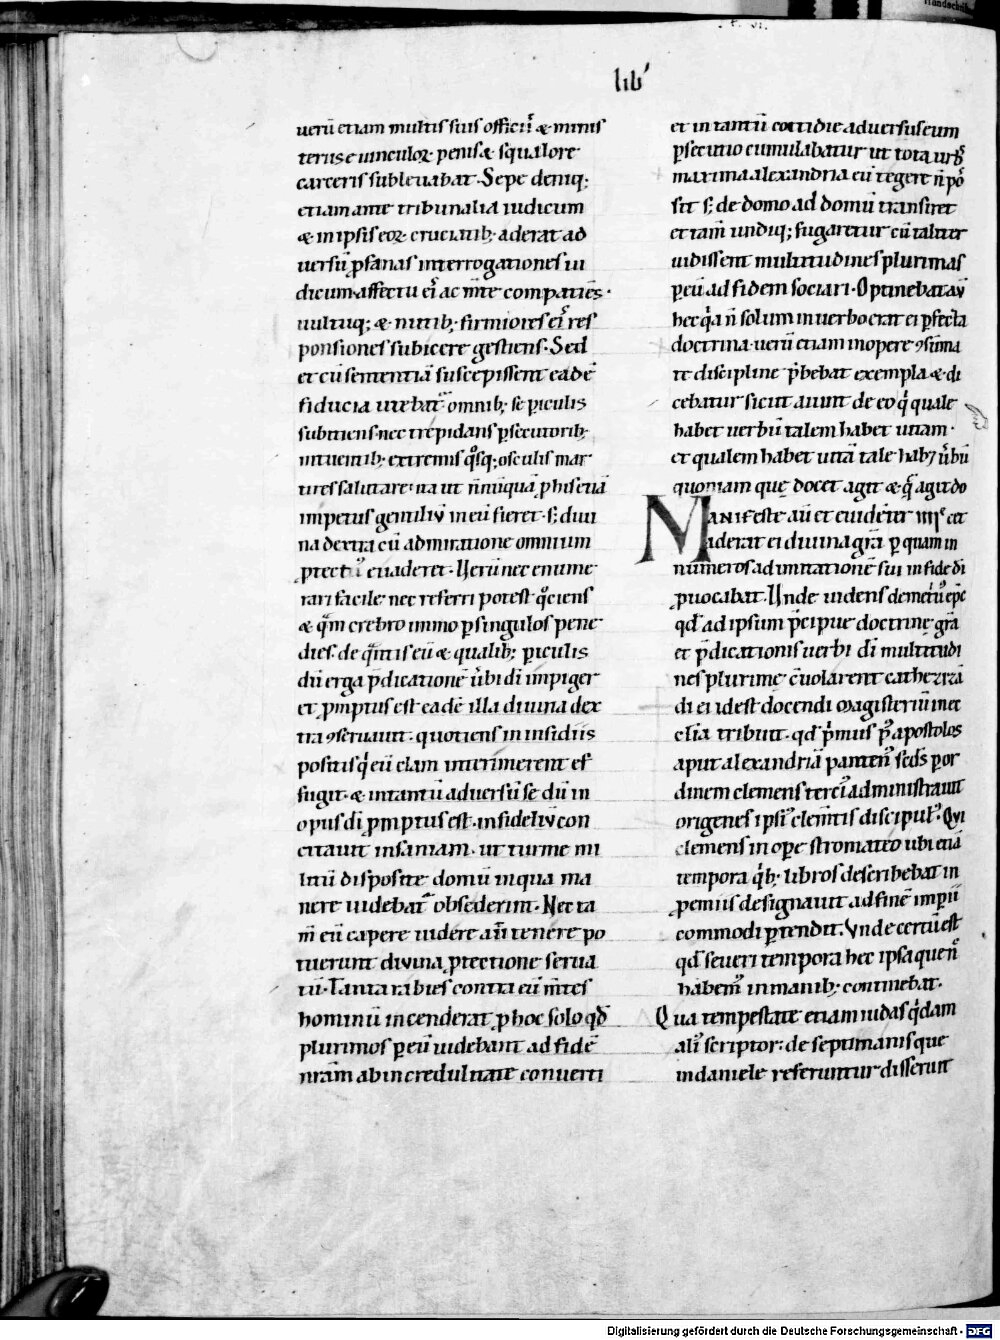 lib'
uerū etiam multis suis officiiſ & minis
teriis e uinculoꝝ penis & squalore
carceris subleuabat. Sepe deniq;
etiam ante tribunalia iudicum
& in ipsis eoꝝ cruciatib; aderat ad
uersū ꝓfanas interrogationes iu
dicum affectu ei ac m̄te compatiēs.
uultuq; & nutib; firmiores eiꝰ res
ponsiones subicere gestiens. Sed
et cū sententiā suscepissent eadē
fiducia utebat̄ omnib; se ꝑiculis
subitiens. nec trepidans ꝑsecutorib;
intuentib; extremis qͦsq; osculis mar
tires salutare: ita ut n̄nūquā ꝑ his etiā
impetus gentiliū in eū fieret. s; diui
na dextra cū admiratione omnium
ꝓtectꝰ euaderet. Uerū nec enume
rari facile nec referri potest qͦciens
& qͣm crebro immo ꝑ singulos pene
dies. de qͣntis eū & qualib; ꝑiculis
dū erga p̄dicationē ūbi dī impiger
et ꝓmptus est eadē illa diuina dex
tra ꝯseruauit. quotiens in insidiis
positus qͥ eū clam interimerent ef
fugit. & intantū aduersū se dū in
opus dī ꝓmptus est. infideliū con
citauit insaniam. ut turme mi
litū disposite domū in qua ma
nere uidebat̄ obsederint. Nec ta
m̄ eū capere uidere aūt tenere po
tuerunt diuina ꝓtectione serua
tū. Tanta rabies contra eū m̄tes
hominū incenderat ꝓ hoc solo qd̄
plurimos ꝑ eū uidebant ad fidē
nr̄am ab incredulitate conuerti
et intantū cottidie aduersus eum
ꝑsecutio cumulabatur ut tota urbs
maxima alexandria eū tegere n̄ pos
sit s; de domo ad domū transiret
et tam̄ undiq; fugaretur cū taliter
uidissent multitudines plurimas
ꝑ eū ad fidem sociari. Optinebat aū
hec qͥa n̄ solum in uerbo erat ei ꝑfecta
doctrina uerū etiam in opere ꝯsūma
te discipline p̄bebat exempla & di
cebatur sicut aiunt de eo qͥ quale
habet uerbū talem habet uitam.
et qualem habet uitā tale hab& ūbū
quoniam que docet agit & q̄ agit do
Manifeste aū et euidēter cet
aderat ei diuina gr̄a ꝑ quam in
numeros ad imitationē sui in fide dī
ꝓuocabat. Unde uidens demetriꝰ epc̄
qd̄ ad ipsum p̄cipue doctrine gr̄a
et p̄dicationis uerbi dī multitudi
nes plurime cōuolarent cathezizā
di ei idest docendi magisterium in ec
clia tribuit. qd̄ pͥmus pꝰ apostolos
aput alexandriā panten̄ sc̄ds ꝑ or
dinem clemens terciꝰ administrauit
origenes ipsiꝰ clem̄tis discipulꝰ. Qui
clemens in ope stromateo ubi etiā
tempora qͥb; libros describebat in
ꝓemiis designauit ad finē imꝑii
commodi ꝑtendit. Unde certū est
qd̄ seueri tempora hec ipsa que nͦ
habemꝰ in manib; continebat.
Qua tempestate etiam iudas qͥdam
aliꝰ scriptor: de septimanis que
in daniele referuntur disseruit
Digitalisierung gefördert durch die Deutsche Forschungsgemeinschaft - DFG